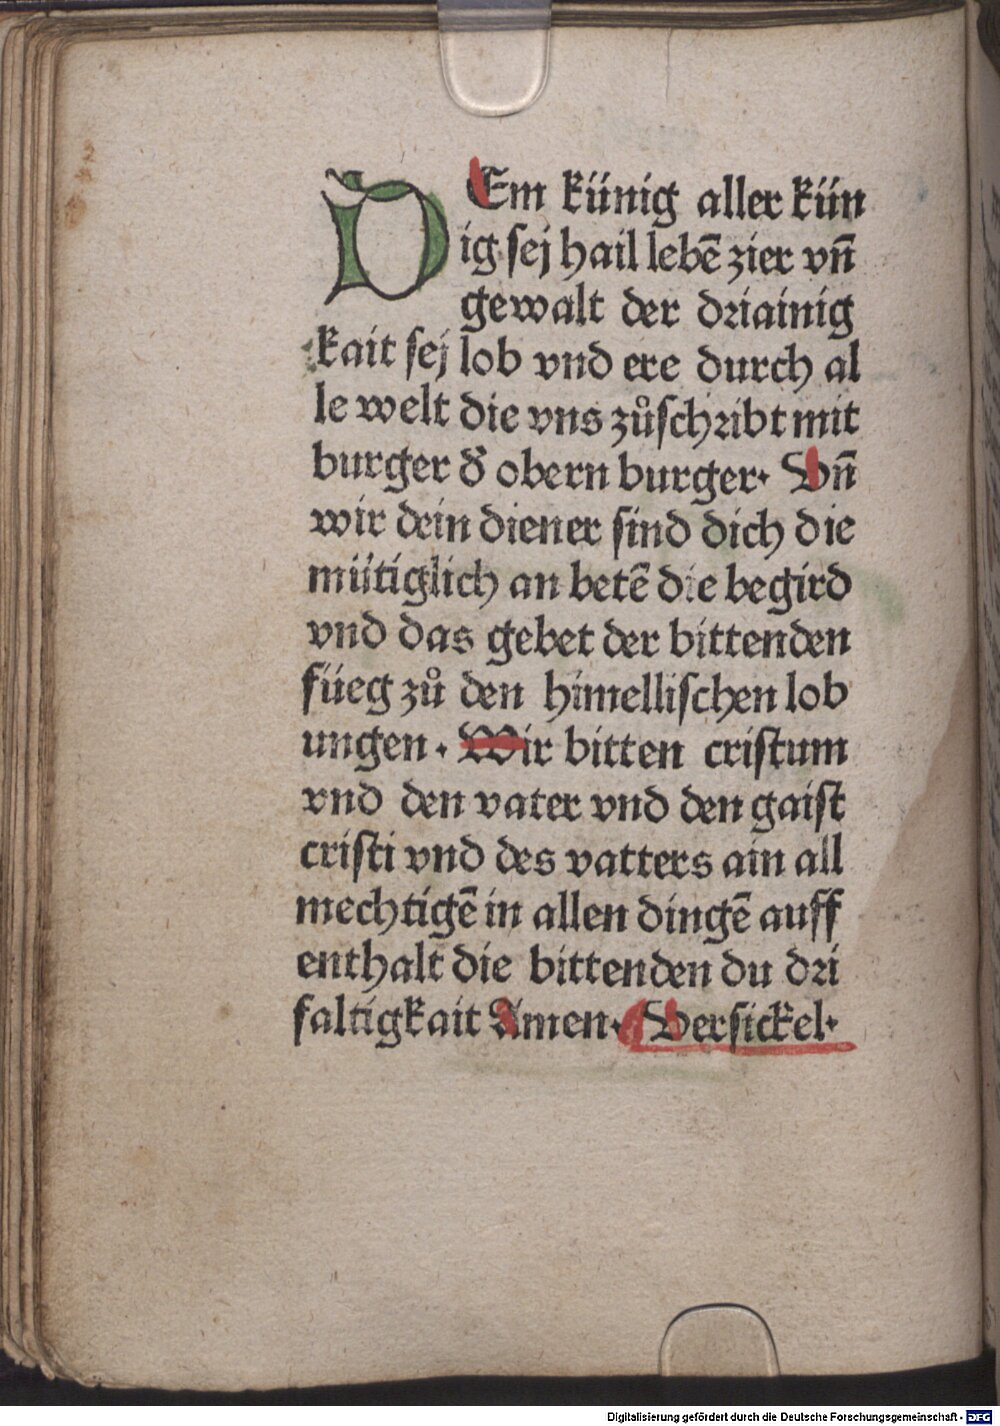 DEm künig aller kün
ig sej hail lebē zier vn̄
gewalt der driainig
kait sej lob vnd ere durch al
le welt die vns zůschribt mit
burger d̕ obern burger· Vn̄
wir dein diener sind dich die
mütiglich an betē die begird
vnd das gebet der bittenden
füeg zů den himellischen lob
ungen· Wir bitten cristum
vnd den vater vnd den gaist
cristi vnd des vatters ain all
mechtigē in allen dingē auff
enthalt die bittenden du dri
faltigkait Amen· Versickel·
Digitalisierung gefördert durch die Deutsche Forschungsgemeinschaft - DFG